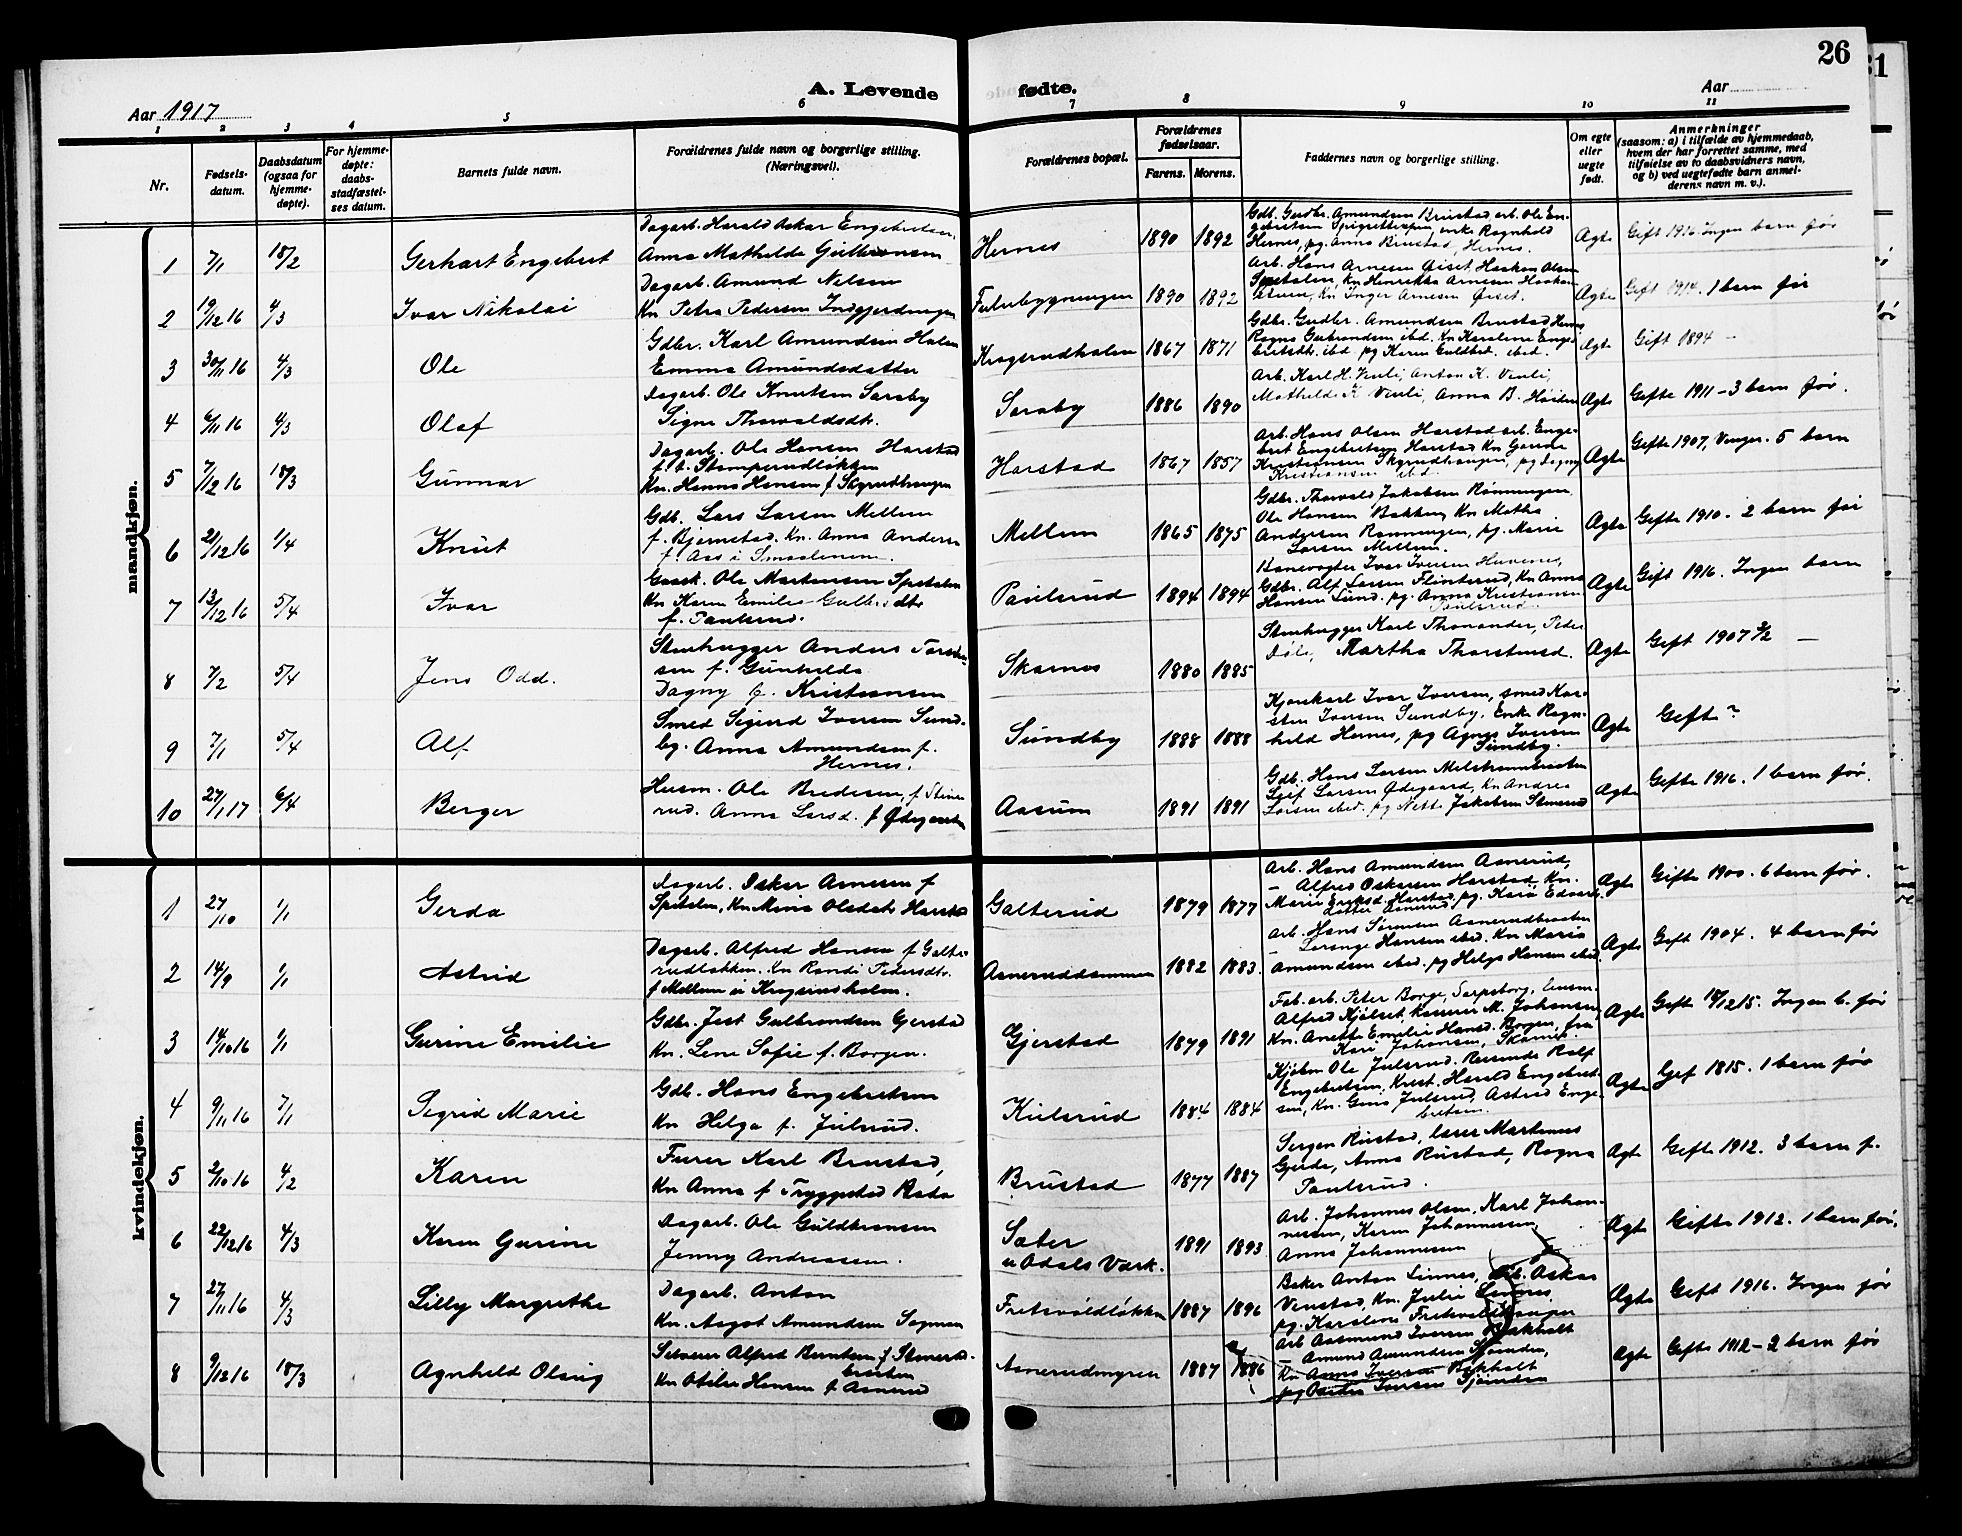 26
31
A. Levende fødte.
Aar 1917
Aar
1 2 3 4 5 6 7 8 9 10 11
Nr.
Fødsels-
datum.
Daabsdatum
(ogsaa for
hjemme-
døpte).
For hjemme-
døpte:
daabs-
stadfæstel-
ses datum.
Barnets fulde navn.
Forældrenes fulde navn og borgerlige stilling.
(Næringsvei).
Forældrenes bopæl.
Forældrenes
fødselsaar.
Farens. Morens.
Faddernes navn og borgerlige stilling.
Om egte
eller
uegte
født.
Anmerkninger
(saasom: a) i tilfælde av hjemmedaab,
hvem der har forrettet samme, med
tilføielse av to daabsvidners navn,
og b) ved uegtefødte barn anmel-
derens navn m. v.).
mandkjøn.
1 7/1 18/2 Gerhart Engebret
Dagarb. Harald Oskar Engebretsen
Anna Mathilde Gulbransen
Hernes 1890 1892
Gdb. Gudbr. Amundsen Brustad, arb. Ole En-
gebretsen, enke Ragnhild
Hernes, pg. Anna Brustad, Hernes.
Ægte Gift 1916 Ingen barn før
2 19/12 16 4/3 Ivar Nikolai
Dagarb. Amund Nelsen
Kn. Petra Pedersen
1890 1892
Arb. Hans Arnesen Øiset, Haakon Olsen
Spetalen, Kn Henrikka Arnesen
Kn. Inger Arnesen Øiset.
Ægte Gift 1914. 1 barn før
3 30/11 16 4/3 Ole
Gdbr. Karl Amundsen Holen
Emma Amundsdatter
Krogsrudholen 1867 1871
Gdbr. Gudbr. Amundsen Brustad Hernes
Ragna Gulbrandsen ibd. Kn Karoline Enge-
bretsdt. ibd pg Karen Guldbd. ibed.
Ægte Gift 1894 -
4 6/11 16 4/3 Olaf
Dagarb. Ole Knutsen Soraby
Signe Thorvaldsdt.
Soraby 1886 1890
Arb. Karl H. Venli, Anton K. Venli,
Mathilde K Venli, Anna B.
Ægte Gifte 1911 - 3 barn før.
5 7/12 16 18/3 Gunnar
Dagarb. Ole Hansen Harstad
f. b. Stomperudløkken
Kn. Hanna Hansen f Skyrudhaugen
Harstad 1867 1857
Arb. Hans Olsen Harstad arb. Enge-
bret Engebretsen Harstad Kn
Kristiansen Skyrudhaugen, pg Dagny
Kristiansen ibd.
Ægte Gifte 1907, Vinger. 5 barn
6 21/12 16 1/4 Knut
Gdb. Lars Larsen Mellem
f. Bjørnstad. Kn. Anna Anders
f. Aas i Smaalenene.
Mellem 1865 1875
Gdbr. Thorvald Jakobsen Rønningen
Ole Hansen Bakken, Kn Matha
Andersen Rønningen, pg. Marie
Larsen Mellem.
Ægte Gifte 1910. 2 barn før
7 13/12 16 5/4 Ivar
Gaardb. Ole Martinsen Spetalen
Kn Karen Emilie Gulbr.dtr
f. Paulsrud.
Paulsrud 1894 1894
Banevogter Ivar Iversen
Gdbr. Alf Larsen Flinterud, Kn Anna
Hansen Lund. pg. Anna Kristiansen
Paulsrud.
Ægte Gift 1916. Ingen barn
8 7/2 5/4 Jens Odd.
Stenhugger Anders Torste-
sen f. Gunhilda
Dagny f. Kristiansen
Skarnes 1880 1885
Stenhugger Karl Thonander, Peder
Martha Thorstensd.
Ægte Gift 1907 2/2 -
9 7/1 5/4 Alf
Smed Sigurd Iversen Sund-
by. Anna Amundsen f.
Hernes.
Sundby 1888 1888
Kjørekarl Ivar Iversen, smed Kar-
sten Iversen Sundby, Enke Ragn-
hild Hernes, pg Agnes Iversen
Sundby.
Ægte Gift ?
10 27/1 17 6/4 Berger
Husm. Ole Bredesen f. Stene-
rud. Anna Larsd. f Ødegaarden
Aasum 1891 1891
Gdb. Hans Larsen
Leif Larsen Ødegaard, Kn Andrea
Larsen ibed. pg Nette Jakobsen Stenerud
Ægte Gifte 1916. 1 barn før.
kvindekjøn.
1 27/10 1/1 Gerda
Dagarb. Oskar Arnesen f
Spetalen, Kn Mina Olsdatr Harstad
Galterud 1879 1877
Arb. Hans Amundsen Asnerud,
- Alfred Oskarsen Harstad, Kn.
Marie Eriksd. Harstad, pg. Kaia Edvards-
datter Asnerud
Ægte Gifte 1900. 6 barn før.
2 14/9 1/1 Astrid
Dagarb. Alfred Hansen f Galte-
rudløkken. Kn Randi Pedersdtr.
f Mellem u Krogsrudholen.
Asneruddammen 1882 1883.
Arb. Hans Sørensen Asnerudbraaten
- Hansen ibed. Kn Maria
Amundsen ibed. pg Helga Hansen ibed.
Ægte Gift 1904. 4 barn før
3 14/10 16 1/1 Gurine Emilie
Gdbr. Jest Gulbrandsen Gjerstad
Kn. Lene Sofie f. Borgen.
Gjerstad 1879 1891
Fab. arb. Peter Borge, Sarpsborg, Lensm.
Alfred Kjølset, Kasserer M. Johansen,
Kn. Anette Emilie Hansd. Borgen, frk.
Kari Johansen, Skarnes.
Ægte Gifte 18/12 15. Ingen b. før
4 9/11 16 7/1 Sigrid Marie
Gdb. Hans Engebretsen
Kn Helga f. Julsrud.
Kulsrud 1884 1884
Kjøbm Ole Julsrud. Reisende Rolf
Engebretsen, Krest. Harald Engebret-
sen, Kn. Gina Julsrud, Astrid Enge-
bretsen.
Ægte Gif 1815. 1 barn før
5 2/10 16 4/2 Karen
Furer Karl Brustad,
Kn Anna f Tryggestad
Brustad 1877 1887
Jørgen Rustad, lærer Martinus
Gjerde, Anna Rustad, Ragna
Paulsrud.
Ægt Gifte 1912. 3 barn f.
6 22/12 16 4/3 Karen Gurine
Dagarb. Ole Guldbransen
Jenny Andreassen.
Sæter
u Odals Værk. 1891 1893
Arb. Johannes Olsen, Karl Johan-
nessen, Karen Johannessen
Anna Johannessen
Ægte Gifte 1912. 1 barn før.
7 27/11 16 4/3 Lilly Margrethe
Dagarb. Anton
Kn. Aagot Amundsen Sagmoen
Fretsvoldløkken 1887 1896
Baker Anton Linnes, Arb. Oskar
Venstad, Kn. Julie Linnes,
pg. Karoline Fretsvoldhaugen
Ægte Gift 1916. Ingen før
8 9/12 16 18/3 Agnhild Olsing
Seterer Alfred Berntsen f Stenerud-
braaten
Kn Otilie Hansen f Asnerud
Asnerudmyren 1887 1886
Arb Aasmund Iversen Bakholt
- Amund Amundsen
Kn Anna Iversen Bakholt
pg Iversen
Ægte Gifte 1912 - 2 barn før